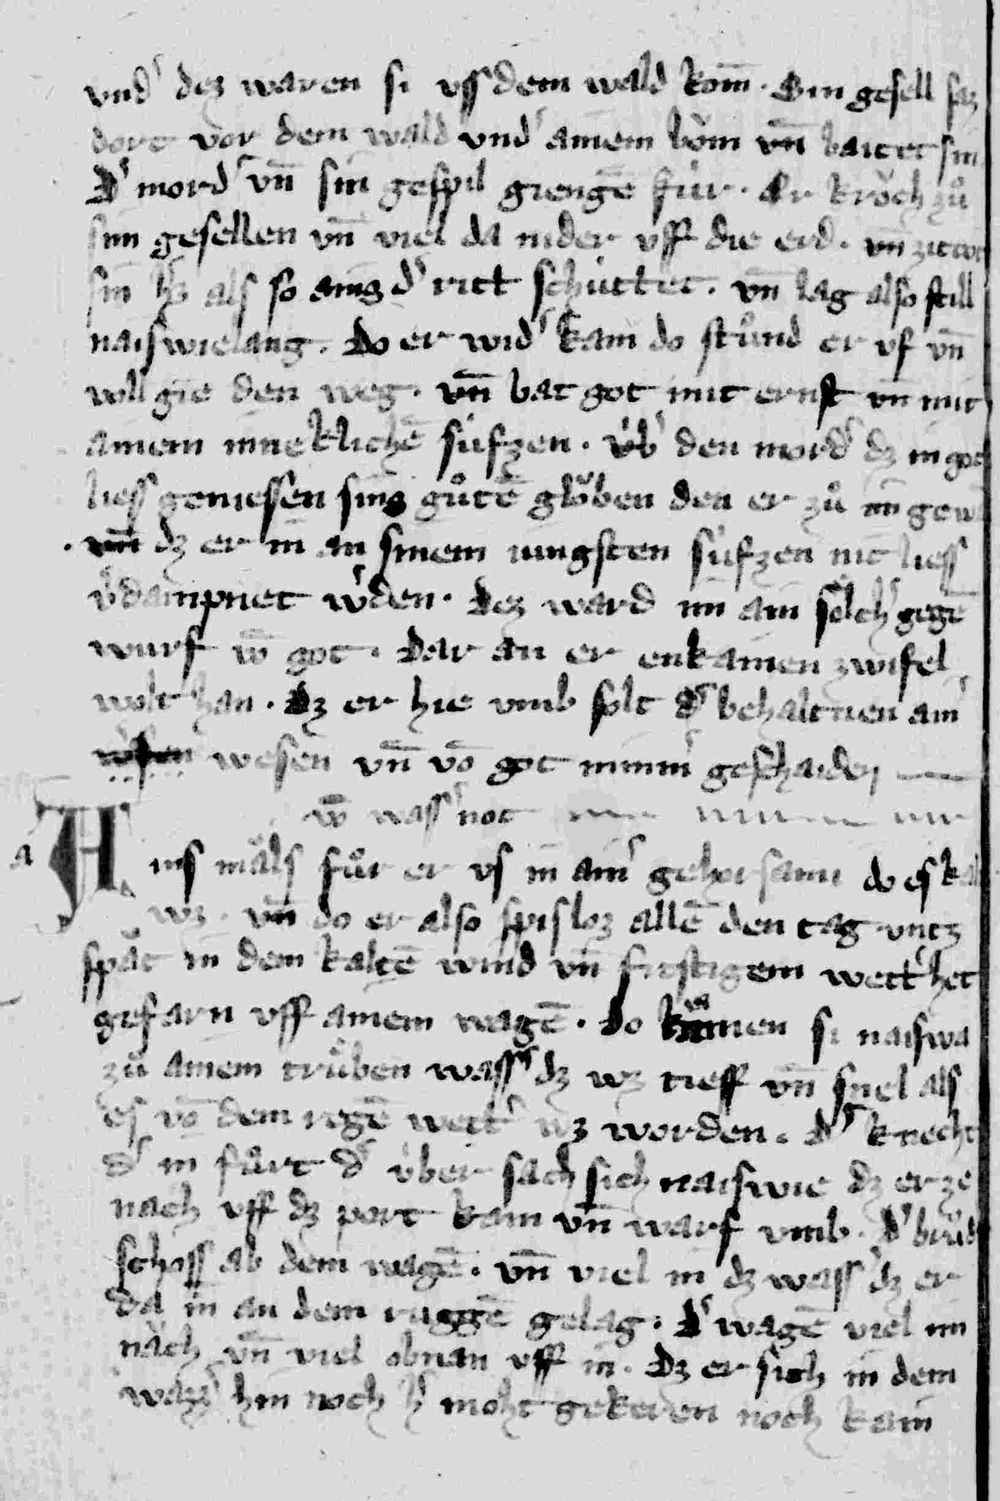 vnd' dez waren si vss dem wald kom̄. Sin gesell saz
dort vor dem wald vnd' ainem bom vn̄ baitet sin
D' mord' vn̄ sin gespil giengē für. Er kroch zů
sim gesellen vn̄ viel da nider vff die erd. vn̄ zittret
sin h'z als so ainē d' ritt schüttet. vn̄ lag also still
naiswielang. Do er wid' kam do stůnd er vf vn̄
voll gie den weg. vn̄ bat got mit ernst vn̄ mit
ainem inneklichē süfzen. üb' den mord' dz in got
liess geniessen sins gůtē gloͮben den er zů im gew
vn̄ dz er in an sinem iungsten süfzen nit liess
v'dampnet w'den. Dez ward im ain soͤlich' gegē
wurf vō got. Dar an er enkainen zwifel
wolt han. Dz er hie vmb solt d' behaltnen ain'
wesen vn̄ vō got nimm' geschaiden
vō wass' not
a
A ins mals fůr er vs in ain' gehorsami do es kalt
wz. vn̄ do er also spisloz allē den tag vntz
spat in dem kaltē wind vn̄ frostigem wett' het
gefarn vff ainem wagē. Do kamen si naiswa
zů ainem trüben wass' dz wz tieff vn̄ snel als
es vō dem regē wett' wz worden. D' knecht
d' in fůrt d' über sach sich naiswie dz er ze
nach vff dz port kam vn̄ warf vmb. D' brůd'
schoss ab dem wagē. vn̄ viel in dz wass' dz er
da in an dem ruggē gelag. D' wagē viel im
nach vn̄ viel obnan vff in. Dz er sich in dem
wazz' hin noch h' moht gekeren noch kain